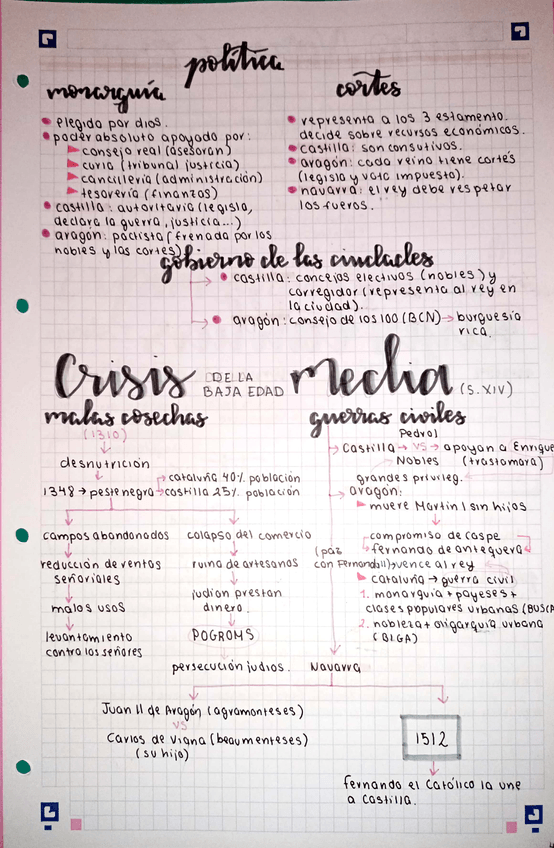 política
monarquía
• elegida por dios.
• poder absoluto apoyado por:
consejo real (asesoran)
curia (tribunal justicia)
cancillería (administración)
tesorería (finanzas)
• castilla: autoritaria (legisla,
declara la guerra, justicia...)
• aragón: pactista (frenada por los
nobles y las cortes)
cortes
• representa a los 3 estamento.
decide sobre recursos económicos.
• castilla: son consutivos.
• aragón: cada reino tiene cortes
(legisla y vota impuesto).
• navarra: el rey debe respetar
los fueros.
gobierno de las ciudades
• castilla: concejos electivos (nobles) y
corregidor (representa al rey en
la ciudad).
• aragón: consejo de los 100 (BCN) → burguesía
rica.
Crisis DE LA BAJA EDAD Media (S.XIV)
malas cosechas
(1310)
desnutrición
1348 → peste negra → cataluña 40% población
castilla 25% población
campos abandonados
reducción de rentas
señoriales
malos usos
levantamiento
contra los señores
colapso del comercio
ruina de artesanos
judíos prestan
dinero.
POGROMS
persecución judíos.
guerras civiles
Pedro I
Castilla → VS → apoyan a Enrique
Nobles (trastamara)
grandes privileg.
aragón:
muere Martín I sin hijos
compromiso de caspe
fernando de antequera
(paz
con Fernando II) vence al rey
cataluña → guerra civil
1. monarquía + payeses +
clases populares urbanas (BUSCA
2. nobleza + oligarquía urbana
(BIGA)
Navarra
Juan II de Aragón (agramonteses)
VS
Carlos de Viana (beaumenteses)
(su hijo)
1512
fernando el Católico la une
a Castilla.